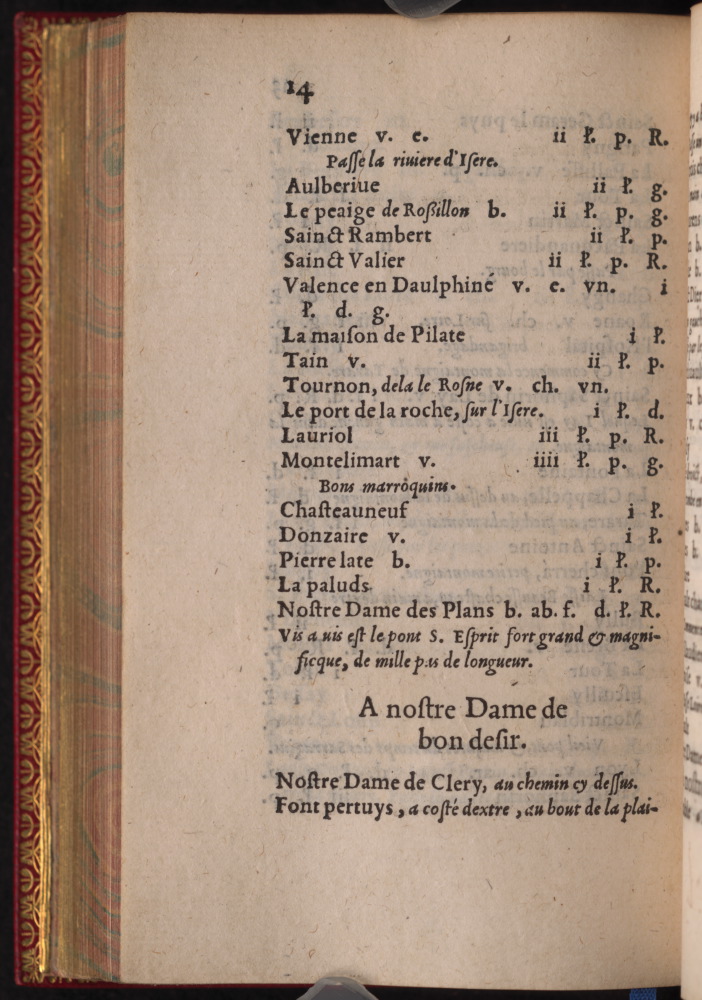 14
Vienne v. e. ii ł. p. R.
Paſſe la riuiere d'Iſere.
Aulberiue ii ł. g.
Le peaige de Roßillon b. ii ł. p. g.
Sainct Rambert ii ł. p.
Sainct Valier ii ł. p. R.
Valence en Daulphiné v. e. vn. i
ł. d. g.
La maiſon de Pilate i ł.
Tain v. ii ł. p.
Tournon, dela le Roſne v. ch. vn.
Le port de la roche, ſur l'Iſere. i ł. d.
Lauriol iii ł. p. R.
Montelimart v. iiii ł. p. g.
Bons marroquins.
Chaſteauneuf i ł.
Donzaire v. i ł.
Pierrelate b. i ł. p.
La paluds i ł. R.
Noſtre Dame des Plans b. ab. f. d. ł. R.
Vis a uis eſt le pont S. Eſprit fort grand & magni-
ficque, de mille pas de longueur.
A noſtre Dame de
bon deſir.
Noſtre Dame de Clery, au chemin cy deſſus.
Font pertuys, a coſté dextre, au bout de la plai-